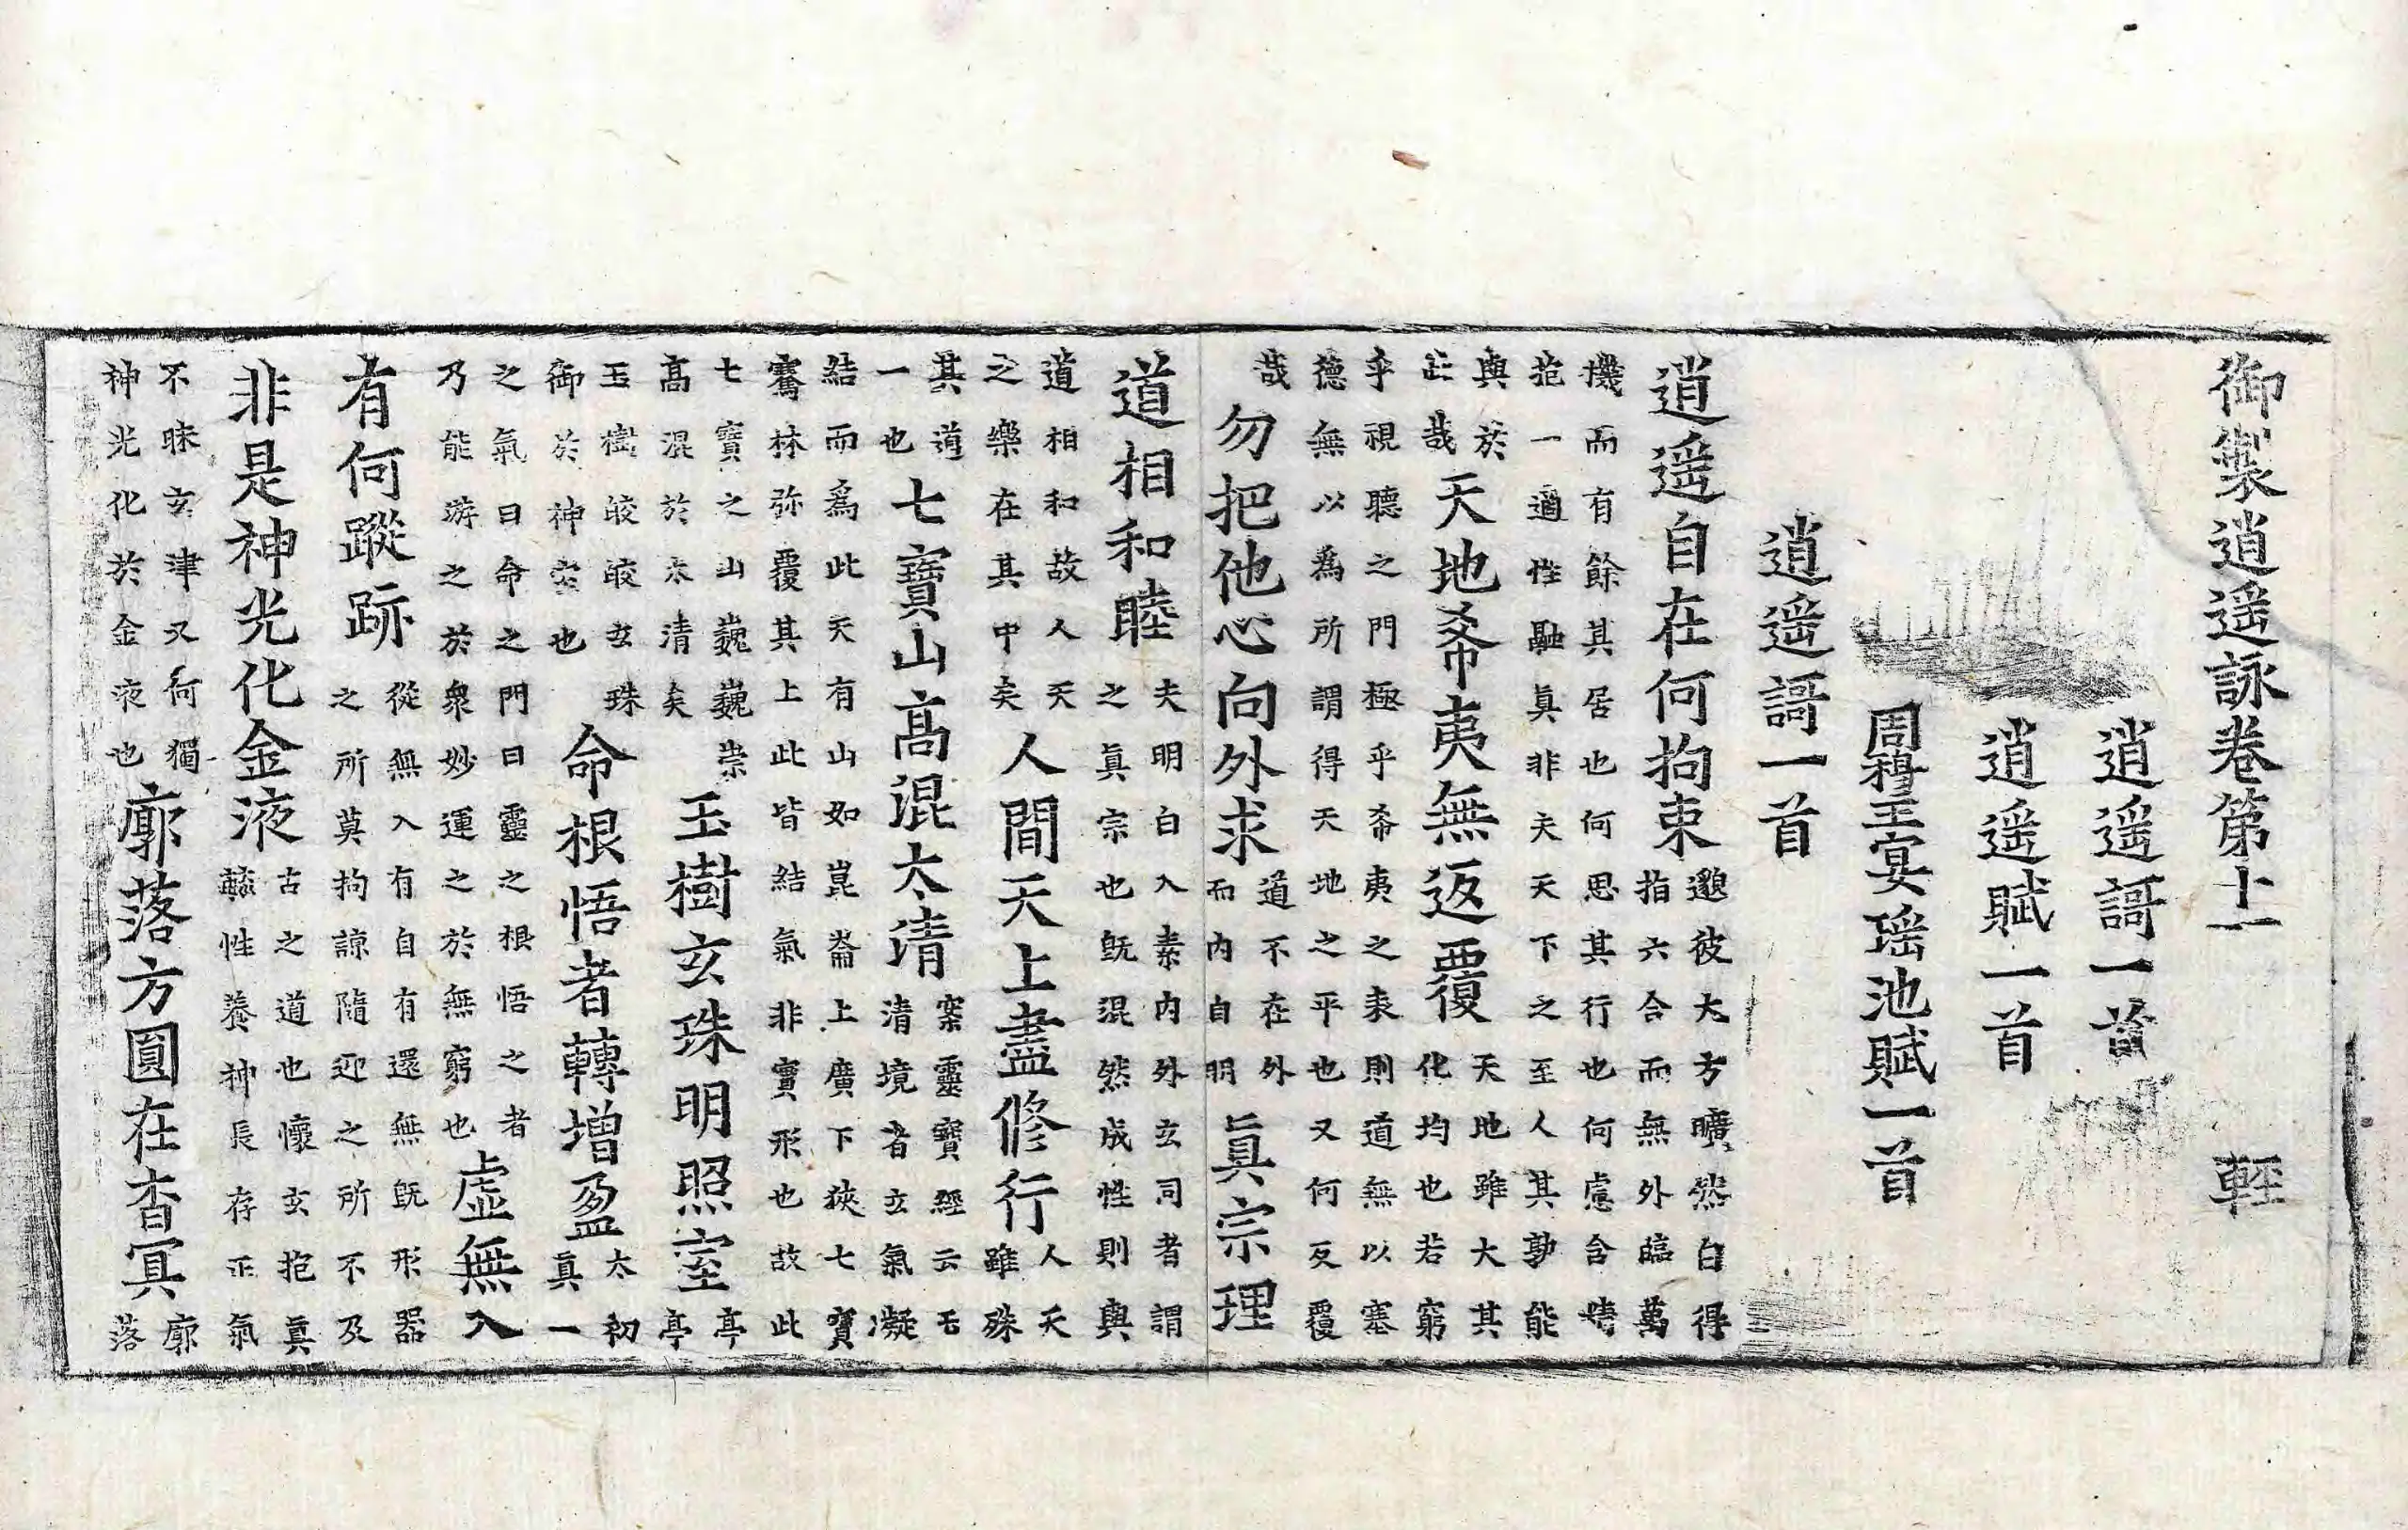 御製逍遥詠卷第十一 輕
逍遥謌一首
逍遥賦一首
周穆王宴瑶池賦一首
逍遥謌一首
逍遥自在何拘束邈彼大方曠然自得指六合而無外臨萬
機而有餘其居也何思其行也何慮含情抱一適性融眞非夫天下之至人其孰能
與於此哉天地希夷無返覆天地雖大其化均也若窮
乎視聽之門極乎希夷之表則道無以塞德無以爲所謂得天地之平也又何反覆
哉勿把他心向外求道不在外而内自明眞宗理
道相和睦夫明白入素内外玄同者謂之眞宗也旣混然成性則與
道相和故人天之樂在其中矣人間天上盡修行人天雖殊
其道一也七寶山高混太清案靈寶經云石清境者玄氣凝
結而爲此天有山如崑崙上廣下狹七寶騫林弥覆其上此皆結氣非實形也故此
七寶之山巍巍崇高混於太清矣玉樹玄珠明照室亭亭
玉樹皎皎玄珠御於神室也命根悟者轉增盈太初眞一
之氣曰命之門曰靈之根悟之者乃能游之於衆妙運之於無窮也虛無入
有何蹤跡從無入有自有還無旣形器之所莫拘諒隨迎之所不及
非是神光化金液古之道也懷玄抱眞蘊性養神長存正氣
不昧玄津又何獨神光化於金液也廓落方圓在杳冥廓落